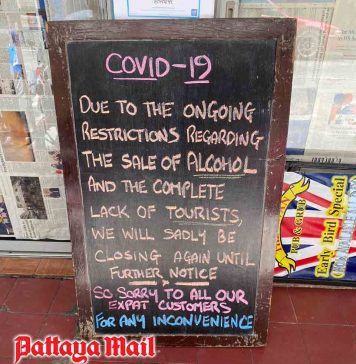 COVID-19
DUE TO THE ONGOING
RESTRICTIONS REGARDING
THE SALE OF ALCOHOL
AND THE COMPLETE
LACK OF TOURISTS,
WE WILL SADLY BE
CLOSING AGAIN UNTIL
FURTHER NOTICE
SO SORRY TO ALL OUR
EXPAT CUSTOMERS
FOR ANY INCONVENIENCE
Early Bird Special
Pattaya Mail